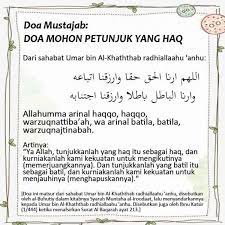 Doa Mustajab:
DOA MOHON PETUNJUK YANG HAQ
Dari sahabat Umar bin Al-Khaththab radhiallaahu 'anhu:
اللهم ارنا الحق حقا وارزقنا اتباعه
وارنا الباطل باطلا وارزقنا اجتنابه
Allahumma arinal haqqo, haqqo,
warzuqnattiba'ah, wa arinal batila, batila,
warzuqnajtinabah.
Artinya:
"Ya Allah, tunjukkanlah yang haq itu sebagai haq, dan
kurniakanlah kami kekuatan untuk mengikutinya
(memerjuangkannya). Dan tunjukkanlah yang batil itu
sebagai batil, dan kurniakanlah kami kekuatan untuk
menjauhinya (menghapuskannya)."
[Doa ini matsur dari sahabat Umar bin Al-Khaththab radhiallaahu 'anhu, disebutkan
oleh Al-Buhuty dalam kitabnya Syarah Muntaha al-Iroodaat, lalu menyandarkannya
kepada Umar bin Al-Khaththab radhiallaahu 'anhu. Disebutkan juga oleh Ibnu Katsir
(1/444) ketika menafsirkan Surat Al Baqarah ayat 213.]